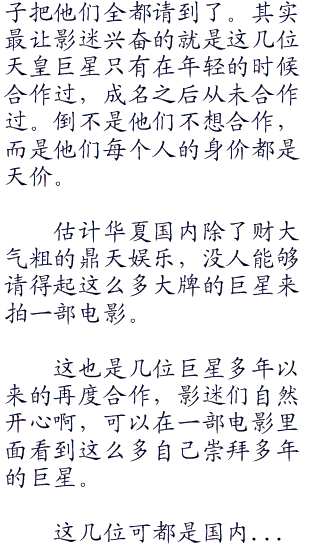 子把他们全都请到了。其实
最让影迷兴奋的就是这几位
天皇巨星只有在年轻的时候
合作过，成名之后从未合作
过。倒不是他们不想合作，
而是他们每个人的身价都是
天价。
估计华夏国内除了财大
气粗的鼎天娱乐，没人能够
请得起这么多大牌的巨星来
拍一部电影。
这也是几位巨星多年以
来的再度合作，影迷们自然
开心啊，可以在一部电影里
面看到这么多自己崇拜多年
的巨星。
这几位可都是国内...